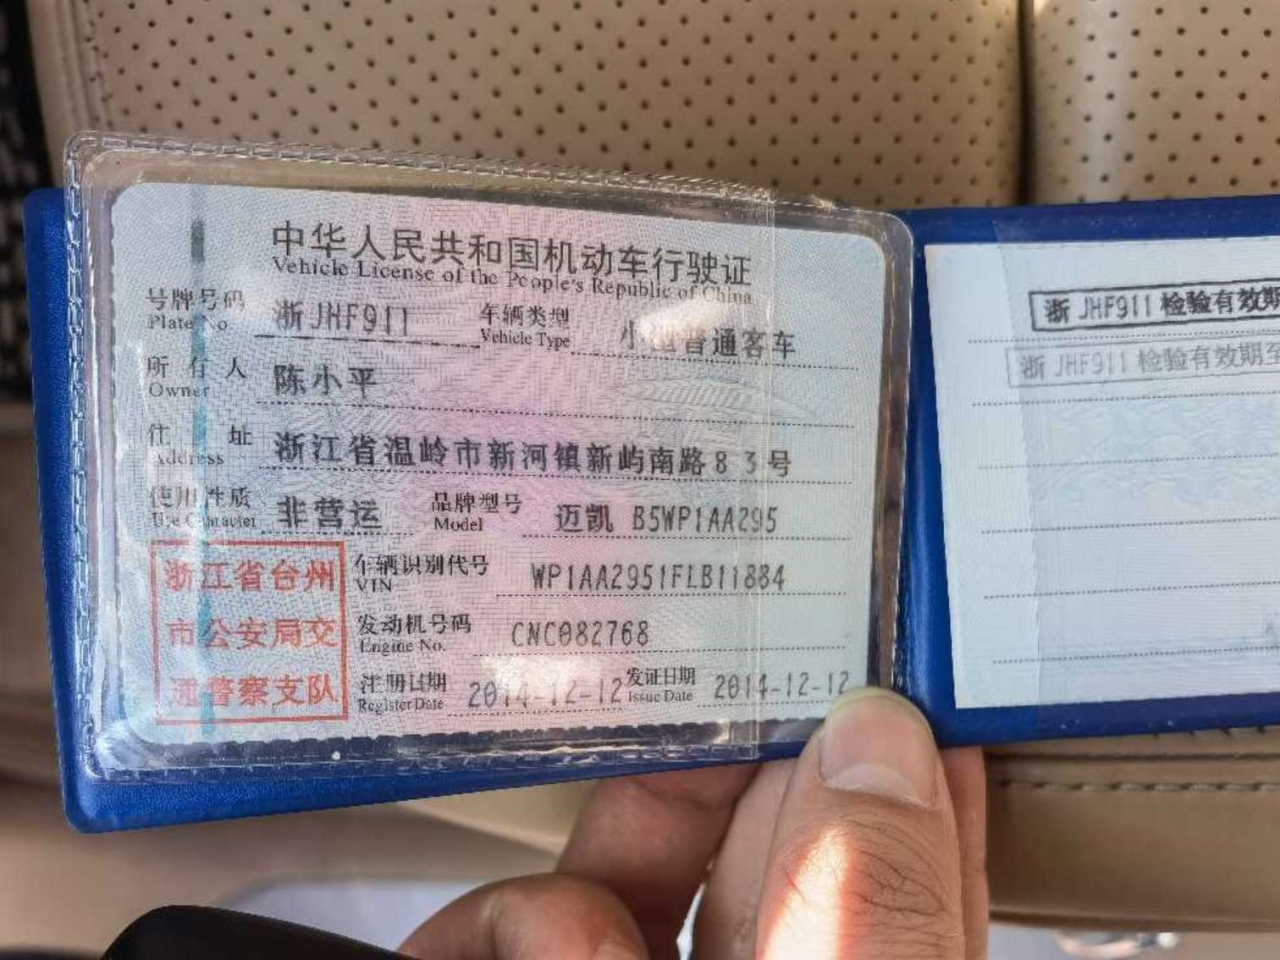 中华人民共和国机动车行驶证
Vehicle License of the People's Republic of China
号牌号码 浙JHF911 车辆类型 小型普通客车
Plate No. Vehicle Type
所有人 陈小平
Owner
住址 浙江省温岭市新河镇新屿南路83号
Address
使用性质 非营运 品牌型号 迈凯 B5WP1AA295
Use Character Model
浙江省台州
市公安局交
通警察支队
车辆识别代号 WP1AA2951FLB11884
VIN
发动机号码 CNC082768
Engine No.
注册日期 2014-12-12 发证日期 2014-12-12
Register Date Issue Date
浙JHF911 检验有效期
浙JHF911 检验有效期至